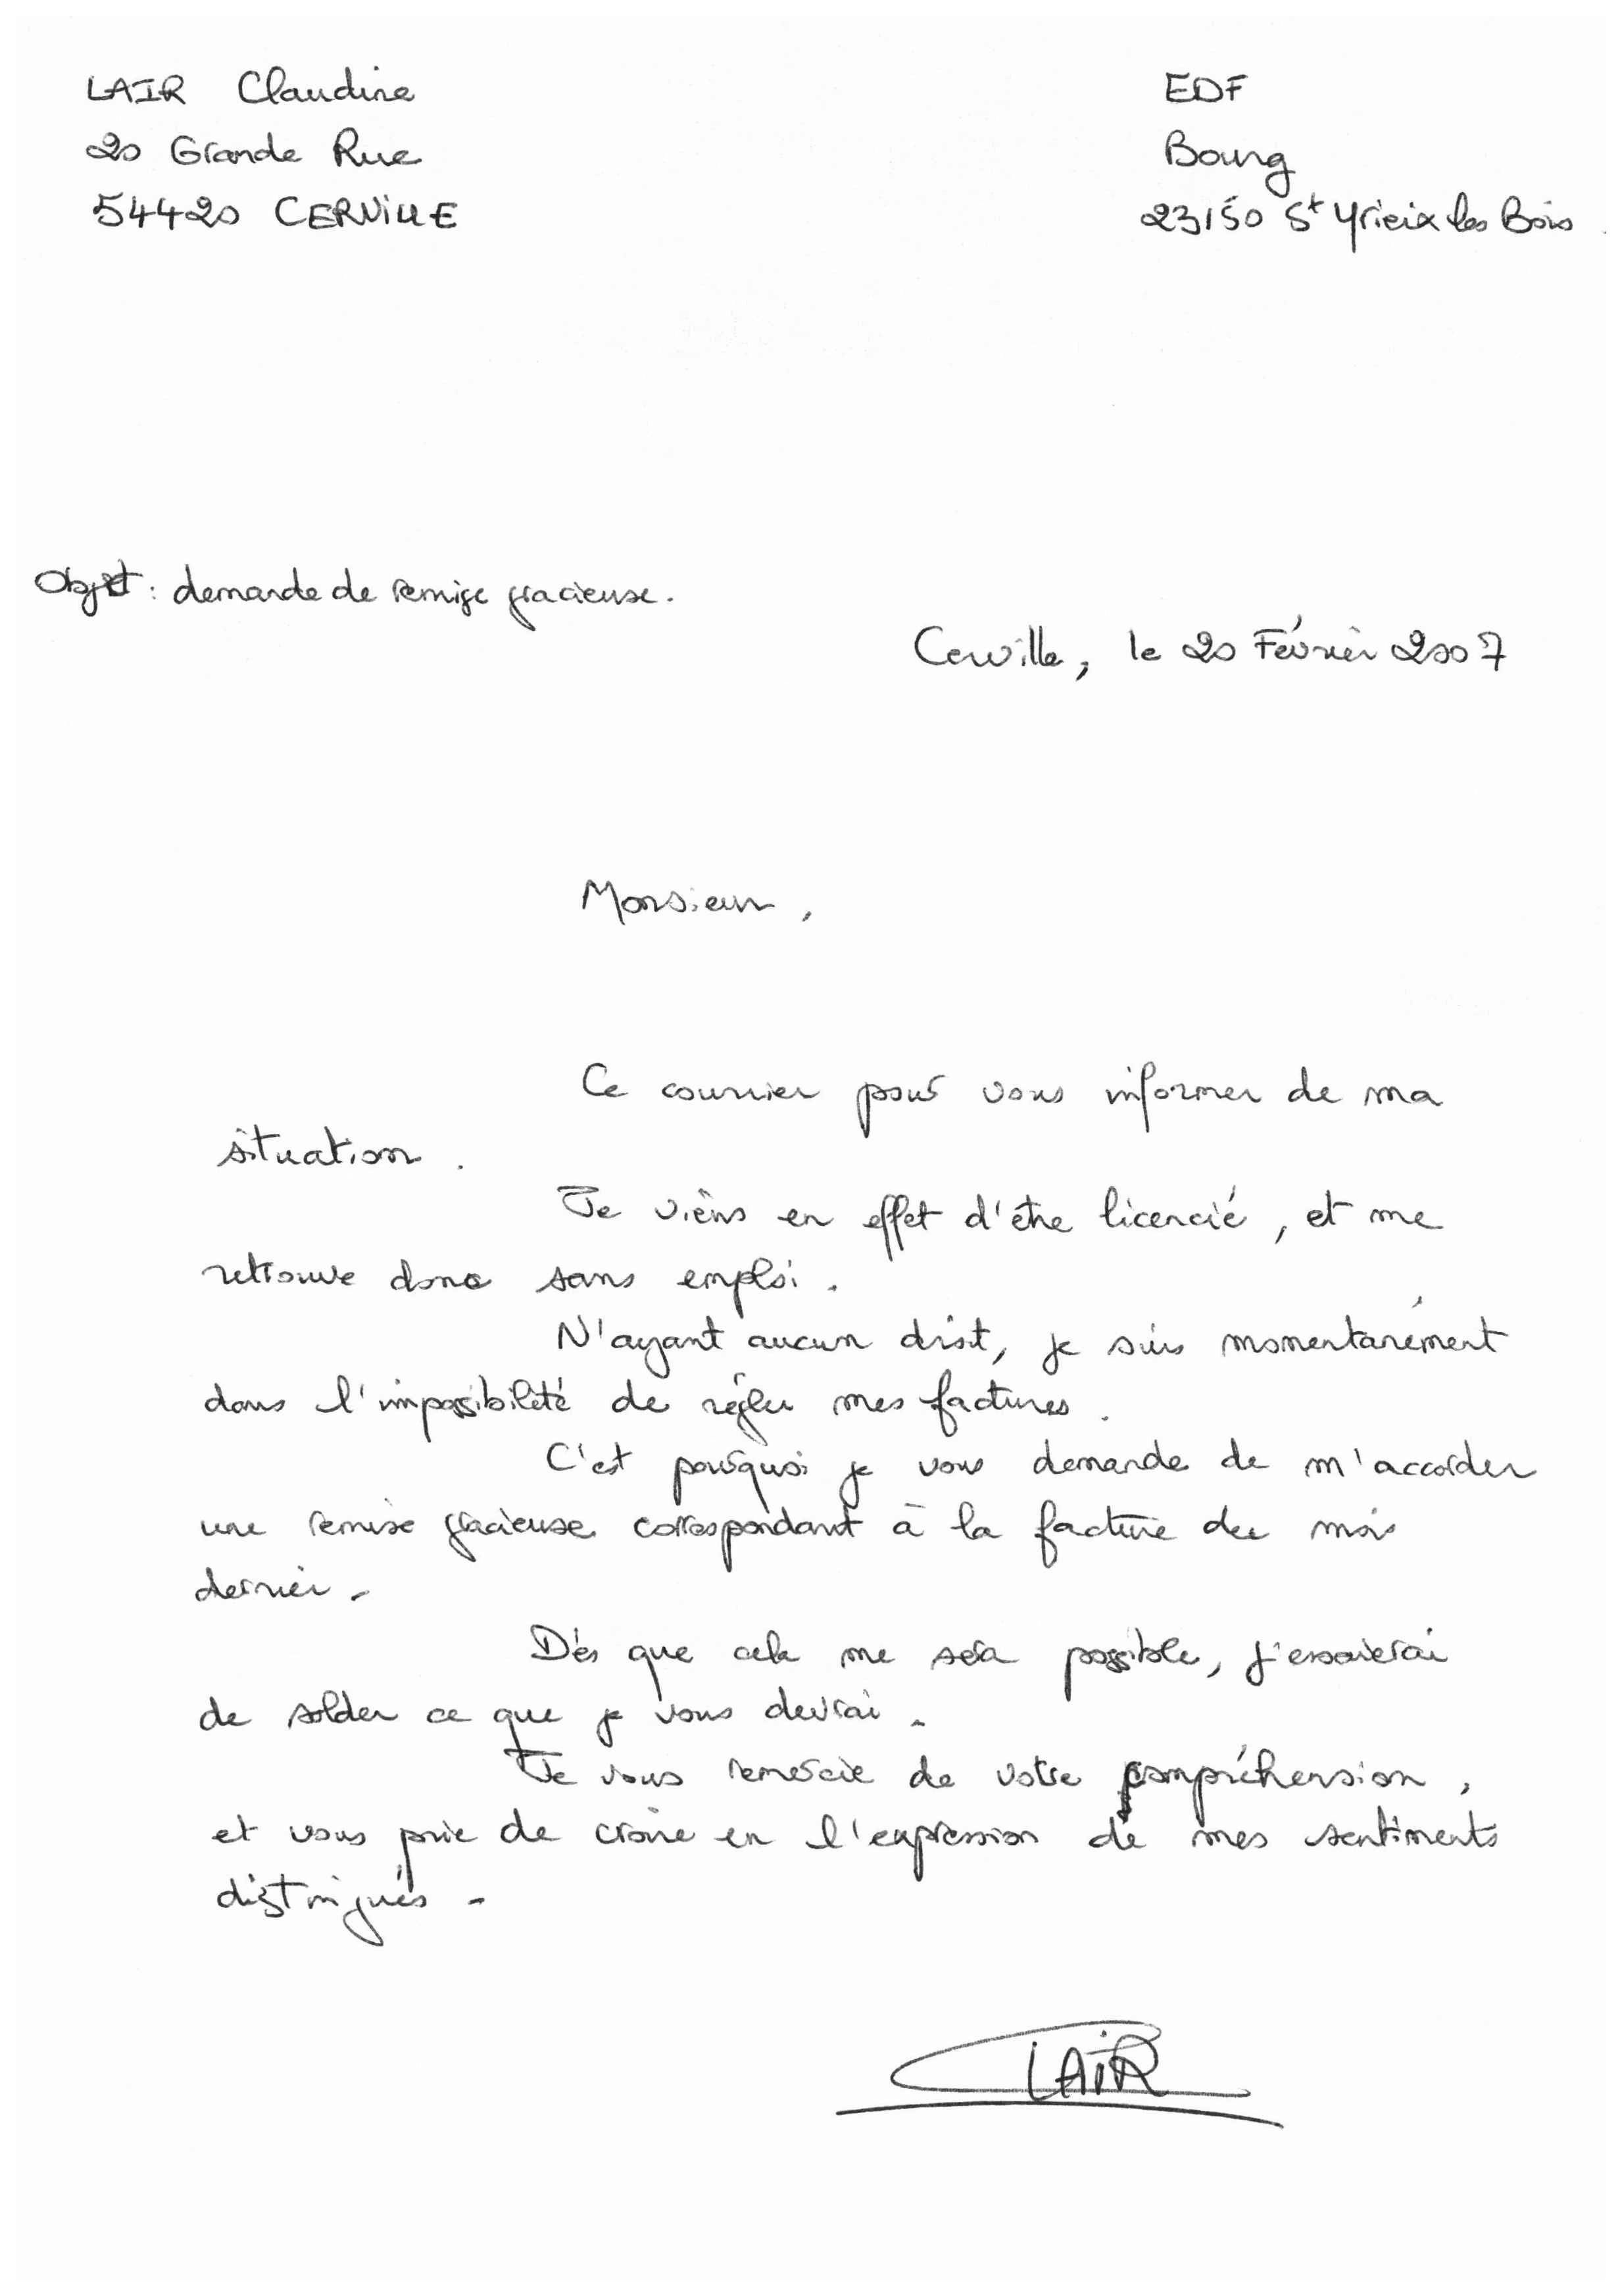 LAIR Claudine
20 Grande Rue
54420 CERVILLE
EDF
Bourg
23150 St Yrieix les Bois
Objet : demande de remise gracieuse.
Cerville, le 20 Février 2007
Monsieur,
Ce courrier pour vous informer de ma
situation.
Je viens en effet d'être licencié, et me
retrouve donc sans emploi.
N'ayant aucun droit, je suis momentanément
dans l'impossibilité de régler mes factures.
C'est pourquoi je vous demande de m'accorder
une remise gracieuse correspondant à la facture du mois
dernier.
Dès que cela me sera possible, j'essaierai
de solder ce que je vous devrai.
Je vous remercie de votre compréhension,
et vous prie de croire en l'expression de mes sentiments
distingués.
CLAIR